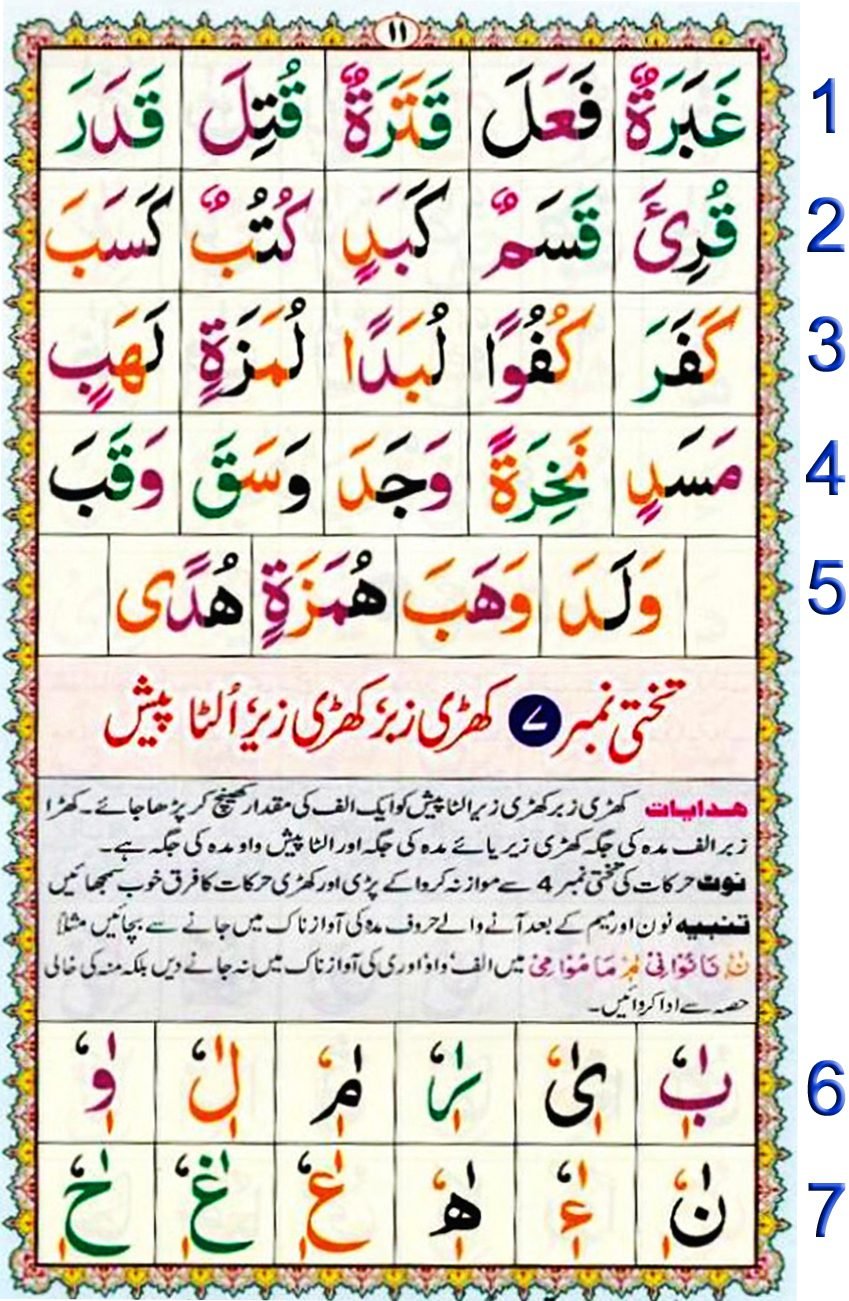 ١١
غَبَرَةٌ فَعَلَ قَتَرَةٌ قُتِلَ قَدَرَ 1
قُرِئَ قَسَمٌ كَبَدٍ كُتُبٌ كَسَبَ 2
كَفَرَ كُفُوًا لُبَدًا لُمَزَةٍ لَهَبٍ 3
مَسَدٍ نَخِرَةً وَجَدَ وَسَقَ وَقَبَ 4
وَلَدَ وَهَبَ هُمَزَةٍ هُدًى 5
تختی نمبر ۷ کھڑی زبر٬ کھڑی زیر٬ اُلٹا پیش
ھدایات کھڑی زبر کھڑی زیر الٹا پیش کو ایک الف کی مقدار کھینچ کر پڑھا جائے۔ کھڑا
زبر الف مدہ کی جگہ کھڑی زیر یائے مدہ کی جگہ اور الٹا پیش واو مدہ کی جگہ ہے۔
نوٹ حرکات کی تختی نمبر 4 سے موازنہ کروا کے پڑی اور کھڑی حرکات کا فرق خوب سمجھائیں
تنبیہ نون اور میم کے بعد آنے والے حروف مدہ کی آواز ناک میں جانے سے بچائیں مثلاً
نْ نَا نُوْا نِیْ مْ مَا مُوْا مِیْ میں الف٬ واؤ اور ی کی آواز ناک میں نہ جانے دیں بلکہ منہ کی خالی
حصہ سے ادا کروائیں۔
بٰٖٗ یٰٖٗ رٰٖٗ مٰٖٗ لٰٖٗ وٰٖٗ 6
نٰٖٗ ءٰٖٗ ھٰٖٗ عٰٖٗ غٰٖٗ حٰٖٗ 7